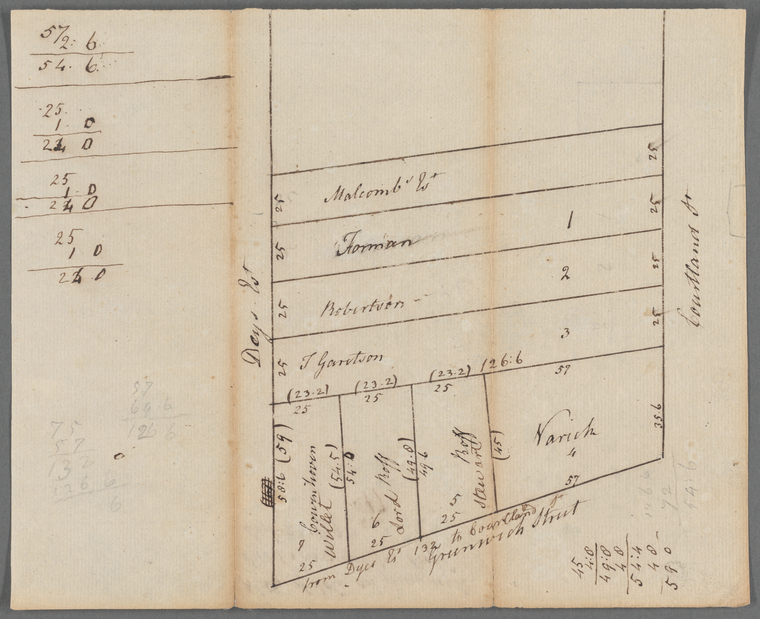 57
2: 6
54. 6
25
1 0
24 0
25
1 0
24 0
25
1 0
24 0
57
69.6
126 6
75
57
132
126 6
6
Deys Est
Courtland St
25
25
Malcombs Est
25
25
Forman
1
25
25
Robertson
2
25
25
T Garitson
3
(23.2) (23.2) (23.2) 126:6
25 25 25 57
58:6 (59)
Couenhoven
Willet
7
25
(54.5)
54:0
Roff
Lord
6
25
(49.8)
49 6
Roff
Stewart
5
25
(45)
Varick
4
57
35 6
from Dyes Est 132 to Courtland St
Greenwich Street
45
4:8
49:8
4 8
54:4
4 8
59 0
72
54:6